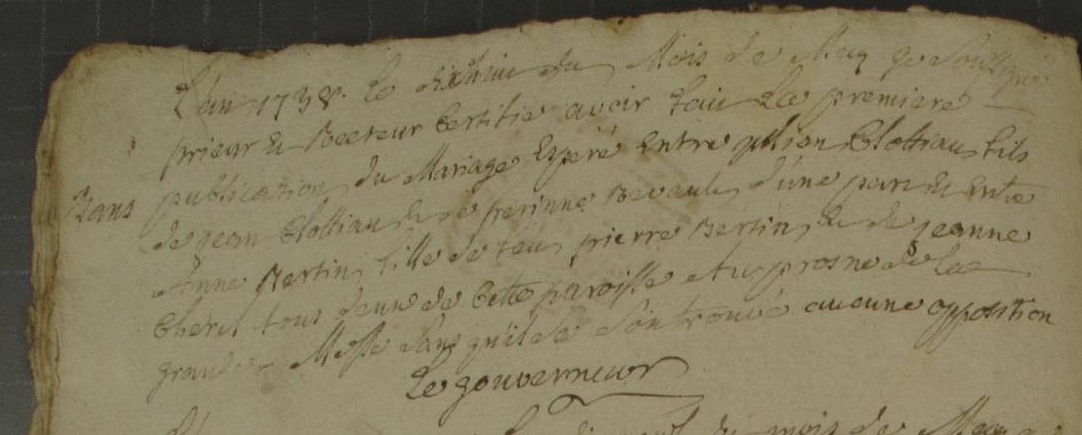 L'an 1738. Le dixhuit du Mois de May je soussigné
prieur & Recteur Certifie avoir fait La premiere
publication du Mariage Esperé Entre jullian Clottiau fils
Bans
de jean Clottiau & de perinne Revault d'une part Et Entre
Anne Bertin fille de feu pierre Bertin & de jeanne
tous deux de Cette paroisse Au prosne de la
grande Messe sans qu'il se soit trouvé aucune opposition
Le gouverneur
mois de May